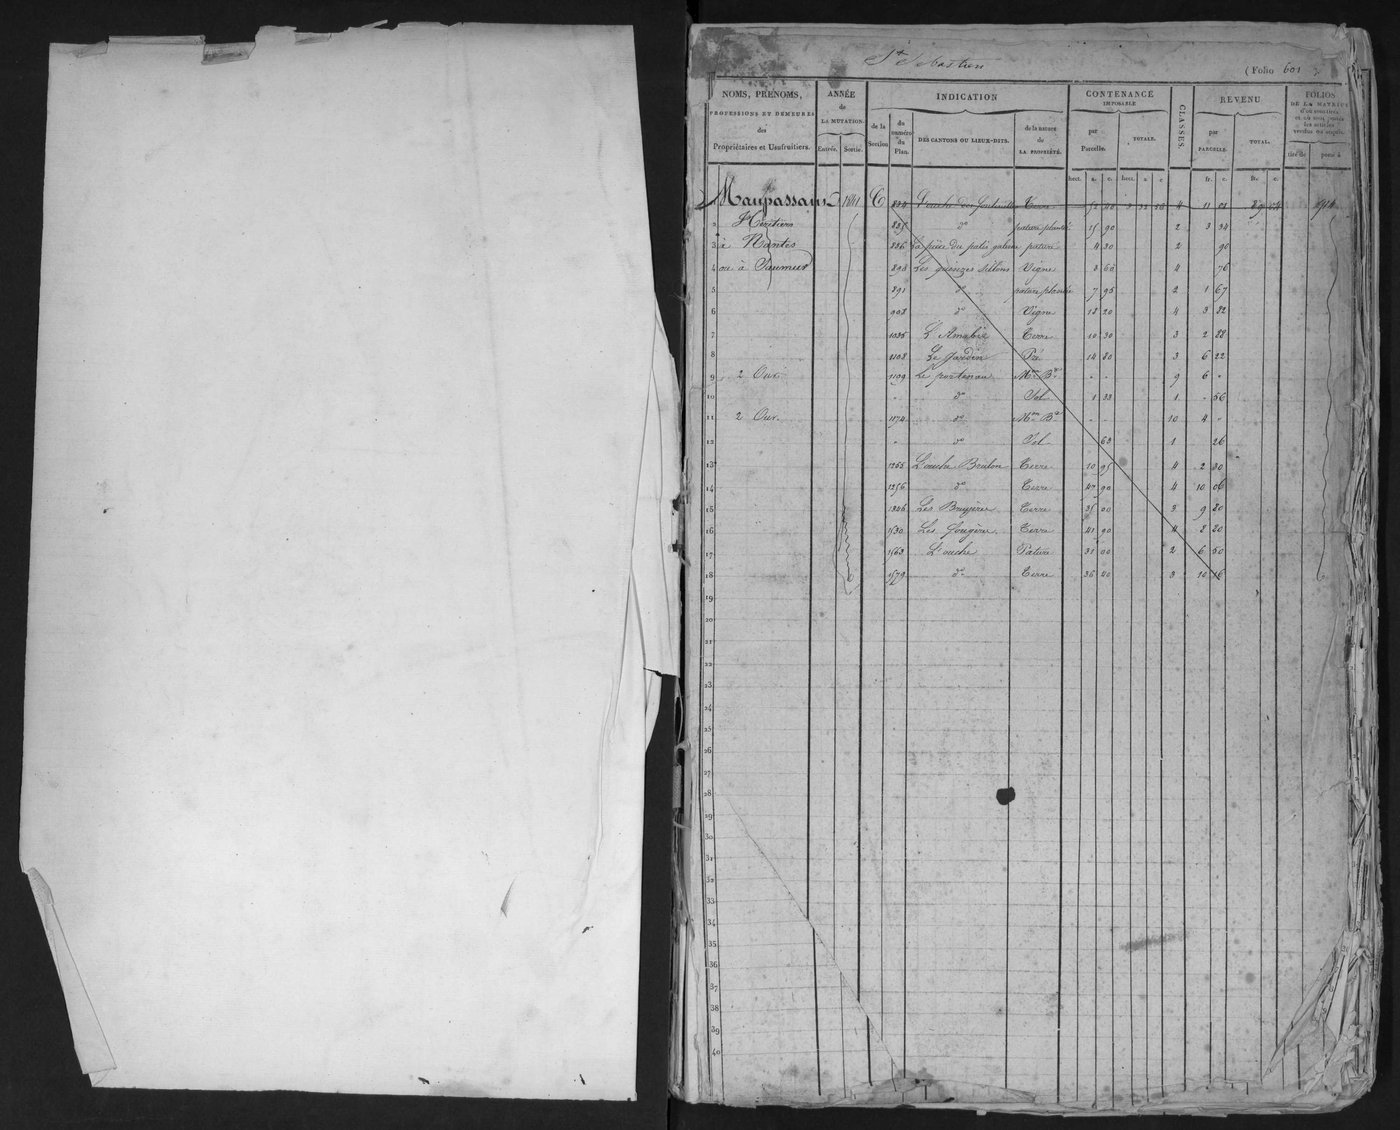 St Sebastien
(Folio 601 ).
NOMS, PRENOMS, PROFESSIONS ET DEMEURES des Propriétaires et Usufruitiers.
ANNÉE de LA MUTATION.
Entrée. Sortie.
INDICATION
de la Section
du numéro du Plan.
DES CANTONS OU LIEUX-DITS.
de la nature de LA PROPRIÉTÉ.
CONTENANCE IMPOSABLE
par Parcelle. TOTALE.
hect. a. c. hect. a c
CLASSES.
REVENU
par PARCELLE. TOTAL.
fr. c. fr. c.
FOLIOS DE LA MATRICE
tiré de porté à
Maupassant 1841 C 884 Terre 4 11 01
2 Héritiers 885 do pature plantée 15 90 2 3 34
3 à Nantes 886 La pièce du patis pature 4 30 2 90
4 ou à Saumur 890 Les quinzes sillons Vigne 3 60 4 76
5 891 do pature plantée 7 95 2 1 67
6 908 do Vigne 18 20 4 3 82
7 1035 Terre 10 30 3 2 88
8 1108 Le Jardin Pré 14 80 3 6 22
9 2 Ouv. 1109 Le portereau Mon Bie - - 9 6 -
10 - do Sol 1 33 1 - 56
11 2 Ouv. 1174 do Mon Bie - - 10 4 -
12 - do Sol 63 1 26
13 1255 L'ouche Brulon Terre 10 95 4 2 30
14 1256 do Terre 47 90 4 10 06
15 1346 Les Bruyeres Terre 35 00 3 9 20
16 1530 Les fougères Terre 41 90 4 2 20
17 1563 L'ouche Pature 31 00 2 6 50
18 1579 do Terre 36 40 3 10 16
19
20
21
22
23
24
25
26
27
28
29
30
31
32
33
34
35
36
37
38
39
40